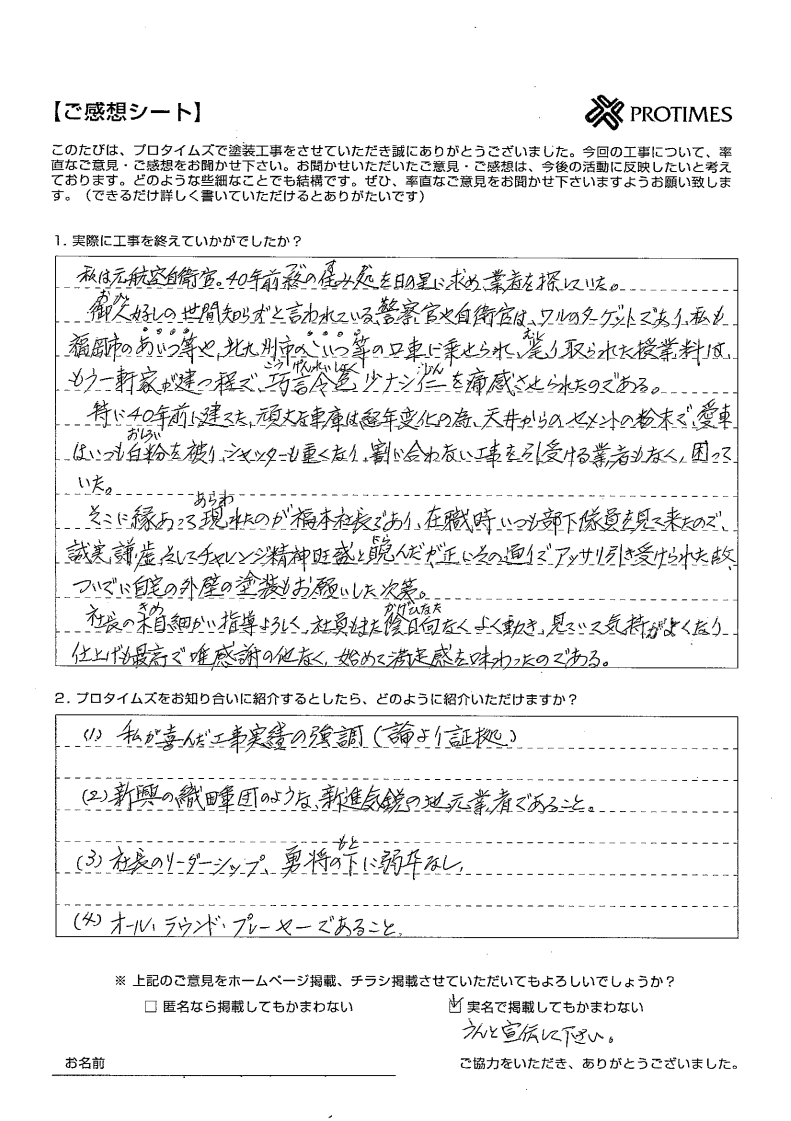 【ご感想シート】
PROTIMES
このたびは、プロタイムズで塗装工事をさせていただき誠にありがとうございました。今回の工事について、率
直なご意見・ご感想をお聞かせ下さい。お聞かせいただいたご意見・ご感想は、今後の活動に反映したいと考え
ております。どのような些細なことでも結構です。ぜひ、率直なご意見をお聞かせ下さいますようお願い致しま
す。（できるだけ詳しく書いていただけるとありがたいです）
1. 実際に工事を終えていかがでしたか？
私は元航空自衛官。40年前終の住み処を目の里に求め、業者を探していた。
御人好しの世間知らずと言われている警察官や自衛官は、ワルのターゲットであり、私も
福岡市のあいつ等や、北九州市のこいつ等の口車に乗せられ、毟り取られた授業料は、
もう一軒家が建つ程で、巧言令色、少ナシ仁を痛感させられたのである。
特に40年前に建てた、頑丈な車庫は経年変化の為、天井からのセメントの粉末で、愛車
はいつも白粉を被り、シャッターも重くなり、割に合わない工事を引受ける業者もなく、困って
いた。
そこに縁あって現れたのが福本社長であり、在職時いつも部下隊員を見て来たので、
誠実、謙虚、そしてチャレンジ精神旺盛と睨んだが正にその通りで、アッサリ引き受けられた故、
ついでに自宅の外壁の塗装もお願いした次第。
社長の木目細かい指導よろしく、社員もまた陰日向なくよく動き、見ていて気持がよくなり
仕上げも最高で唯感謝の他なく、始めて満足感を味わったのである。
2. プロタイムズをお知り合いに紹介するとしたら、どのように紹介いただけますか？
(1) 私が喜んだ工事実績の強調(論より証拠)
(2) 新興の織田軍団のような、新進気鋭の地元業者であること。
(3) 社長のリーダーシップ、勇将の下に弱卒なし、
(4) オール・ラウンド・プレーヤーであること、
※ 上記のご意見をホームページ掲載、チラシ掲載させていただいてもよろしいでしょうか？
□ 匿名なら掲載してもかまわない
☑ 実名で掲載してもかまわない
うんと宣伝して下さい。
お名前
ご協力をいただき、ありがとうございました。